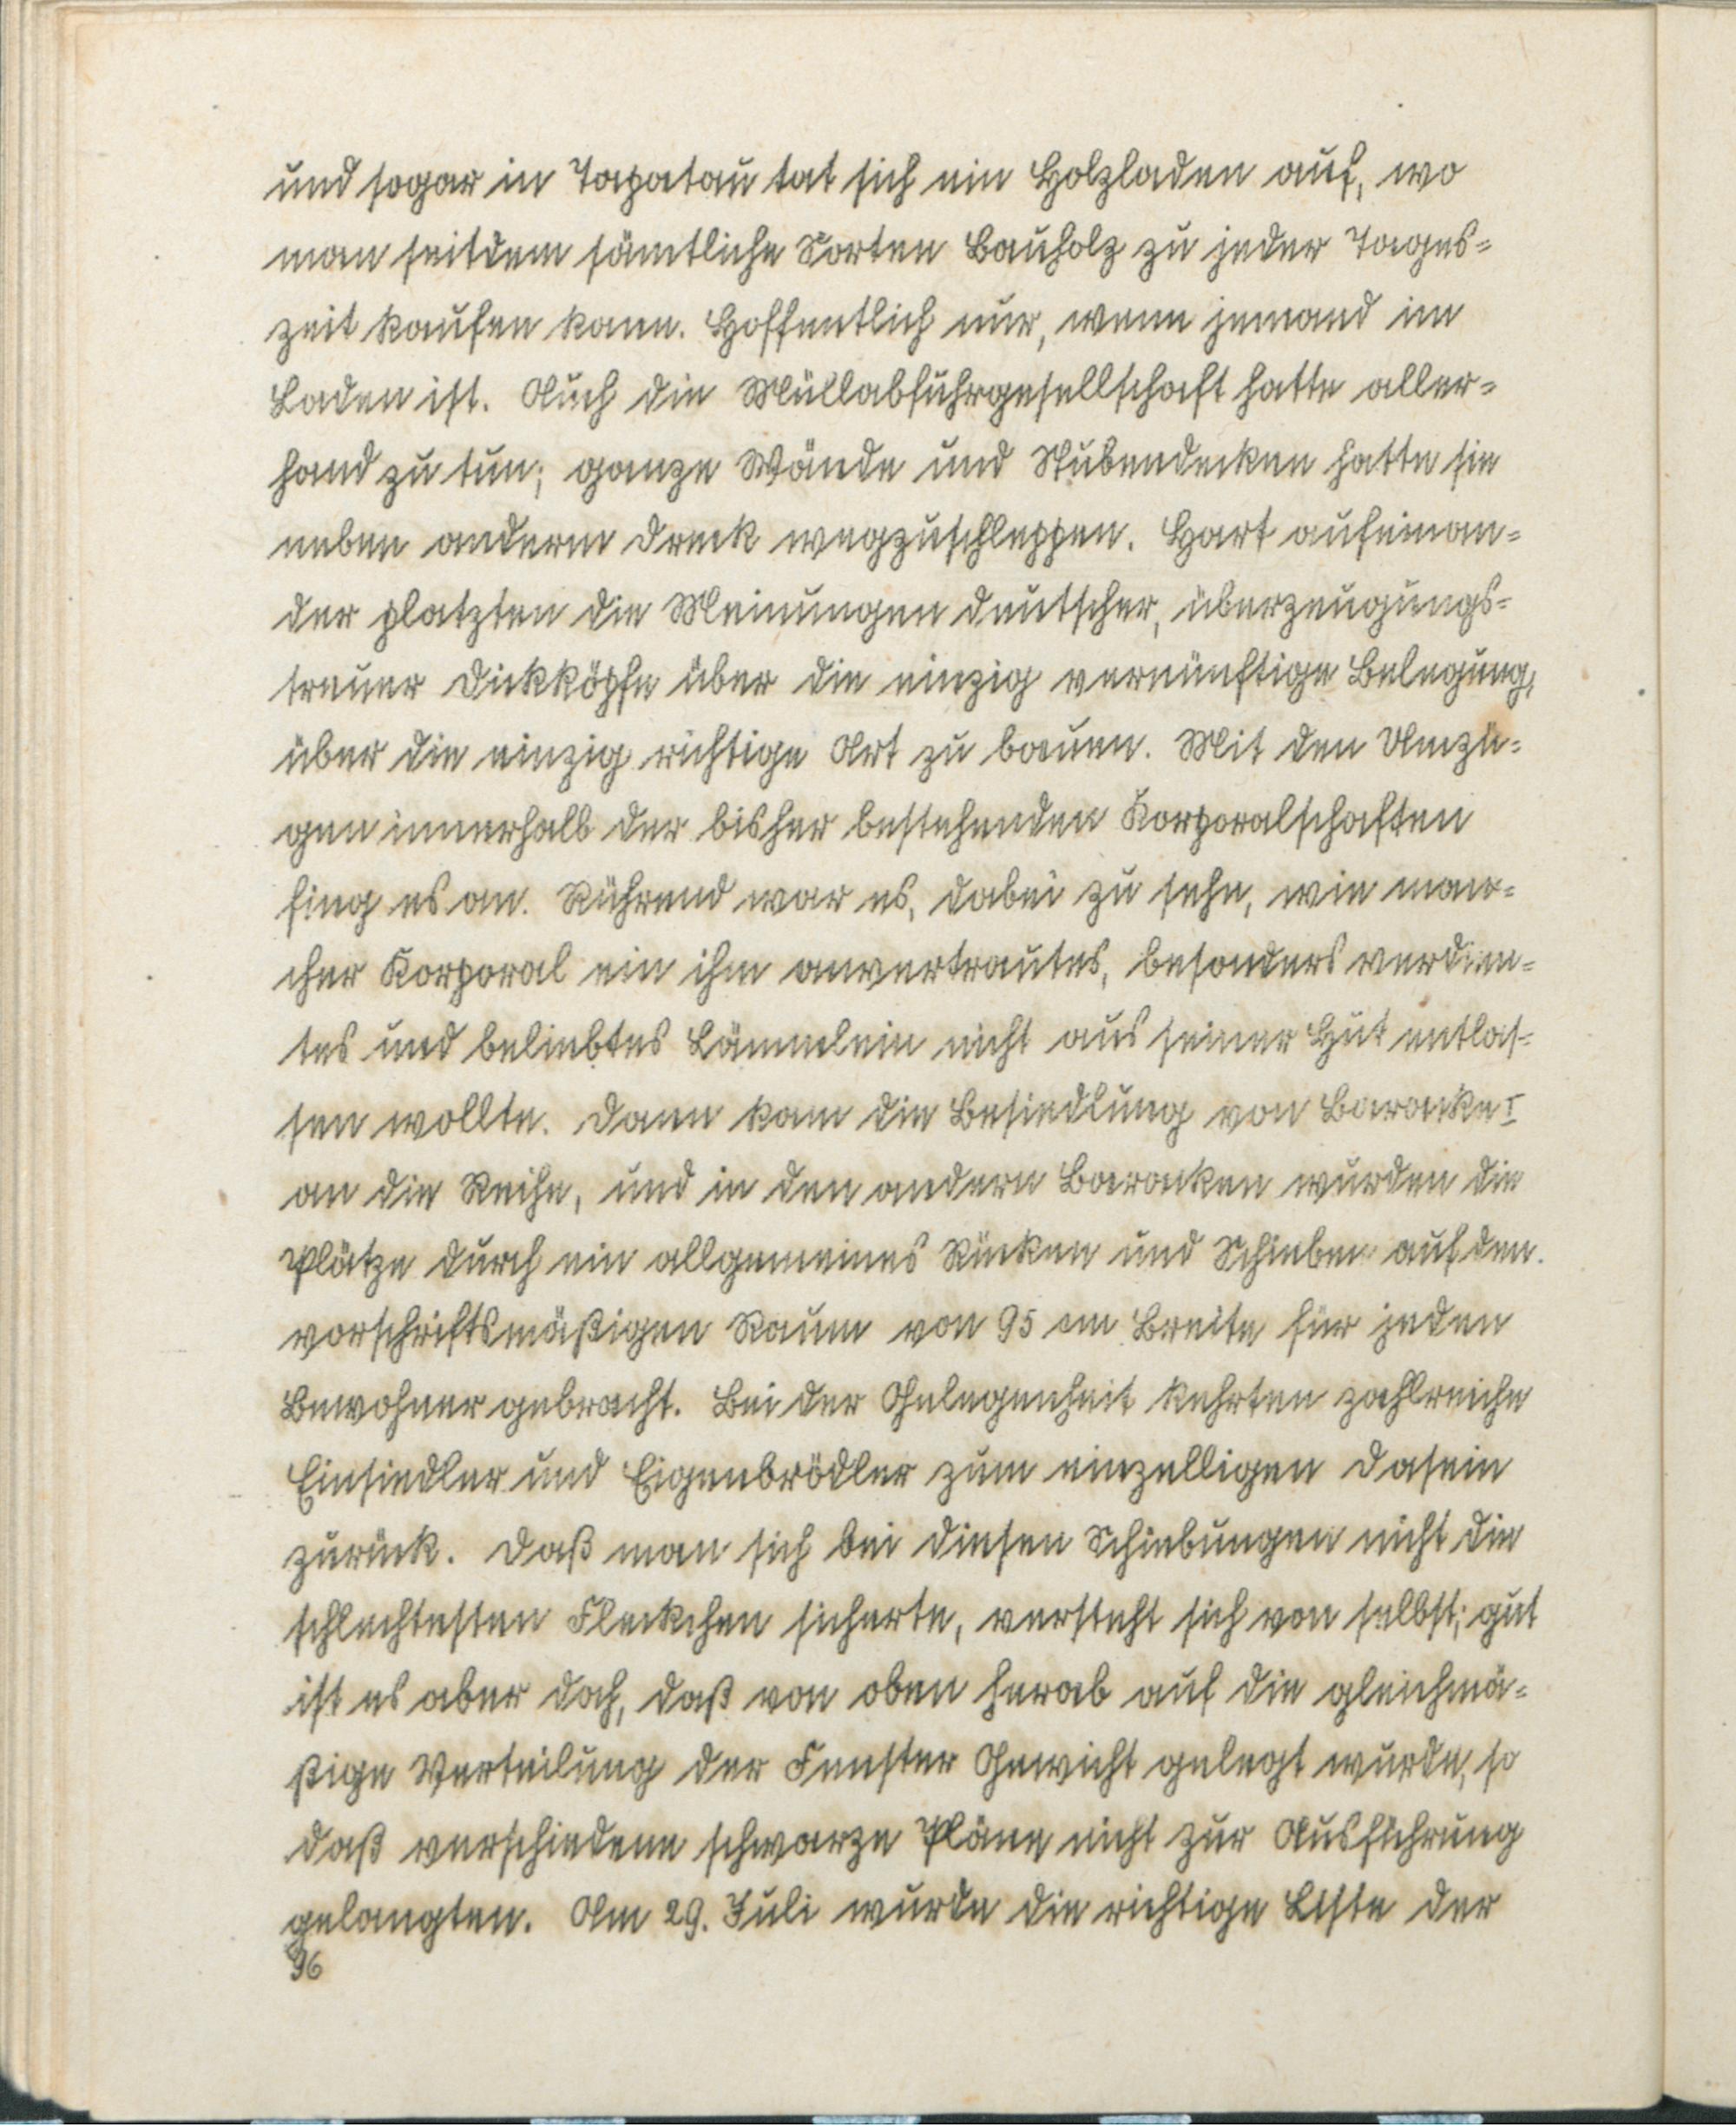 und sogar in Tapatau tat sich ein Holzladen auf, wo
man seitdem sämtliche Sorten Bauholz zu jeder Tages-
zeit kaufen kann. Hoffentlich nur, wenn jemand im
Laden ist. Auch die Müllabfuhrgesellschaft hatte aller-
hand zu tun; ganze Wände und Stubendecken hatte sie
neben anderm Dreck wegzuschleppen. Hart aufeinan-
der platzten die Meinungen deutscher, überzeugungs-
treuer Dickköpfe über die einzig vernünftige Belegung,
über die einzig richtige Art zu bauen. Mit den Umzü-
gen innerhalb der bisher bestehenden Korporalschaften
fing es an. Rührend war es, dabei zu sehn, wie man-
cher Korporal ein ihm anvertrautes, besonders verdien-
tes und beliebtes Lämmlein nicht aus seiner Hut entlas-
sen wollte. Dann kam die Besiedlung von Baracke I
an die Reihe, und in den andern Baracken wurden die
Plätze durch ein allgemeines Rücken und Schieben auf den
vorschriftsmäßigen Raum von 95 cm Breite für jeden
Bewohner gebracht. Bei der Gelegenheit kehrten zahlreiche
Einsiedler und Eigenbrödler zum einzelligen Dasein
zurück. Daß man sich bei diesen Schiebungen nicht die
schlechtesten Fleckchen sicherte, versteht sich von selbst; gut
ist es aber doch, daß von oben herab auf die gleichmä-
ßige Verteilung der Fenster Gewicht gelegt wurde, so
daß verschiedene schwarze Pläne nicht zur Ausführung
gelangten. Am 29. Juli wurde die richtige Liste der
96